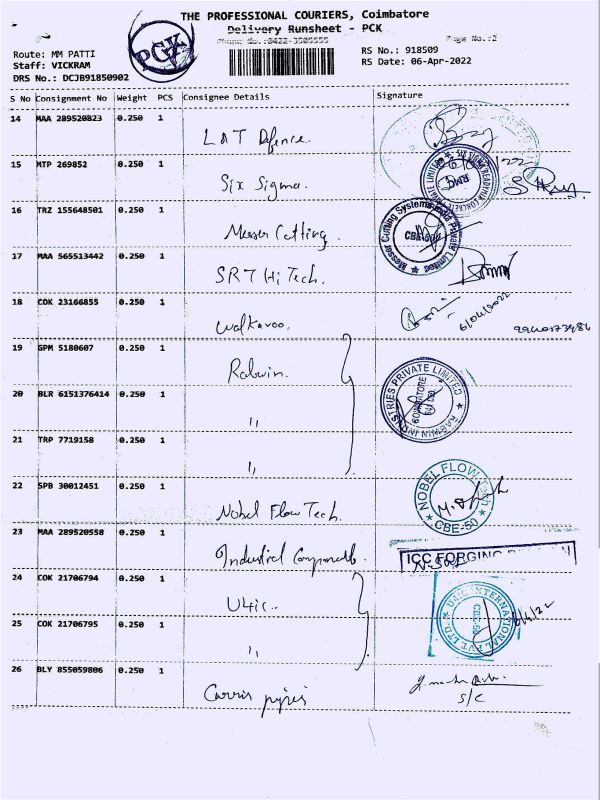 THE PROFESSIONAL COURIERS, Coimbatore
Delivery Runsheet - PCK
Phone No.:0422-3505555
Page No.:2
PCK
Route: MM PATTI
Staff: VICKRAM
DRS No.: DCJB91850902
RS No.: 918509
RS Date: 06-Apr-2022
S No Consignment No Weight PCS Consignee Details Signature
14 MAA 289520823 0.250 1
L&T Defence.
15 MTP 269852 0.250 1
Six Sigma.
RMC
16 TRZ 155648501 0.250 1
Messer Cutting.
Messer Cutting Systems India Private Limited
CBE-50
17 MAA 565513442 0.250 1
SRT Hi Tech.
18 COK 23166855 0.250 1
Walkaroo.
6/04/2022
19 GPM 5180607 0.250 1
Rabwin.
RABWIN INDUSTRIES PRIVATE LIMITED
COIMBATORE
20 BLR 6151376414 0.250 1
"
21 TRP 7719158 0.250 1
"
22 SPB 30012451 0.250 1
Nobel Flow Tech.
NOBEL FLOW Tech
CBE-50
23 MAA 289520558 0.250 1
Industrial Components.
ICC FORGING
24 COK 21706794 0.250 1
U4ic.
INTERNATIONAL PVT. LTD.
CBE-50
6/4/22
25 COK 21706795 0.250 1
"
26 BLY 855059806 0.250 1
S/C